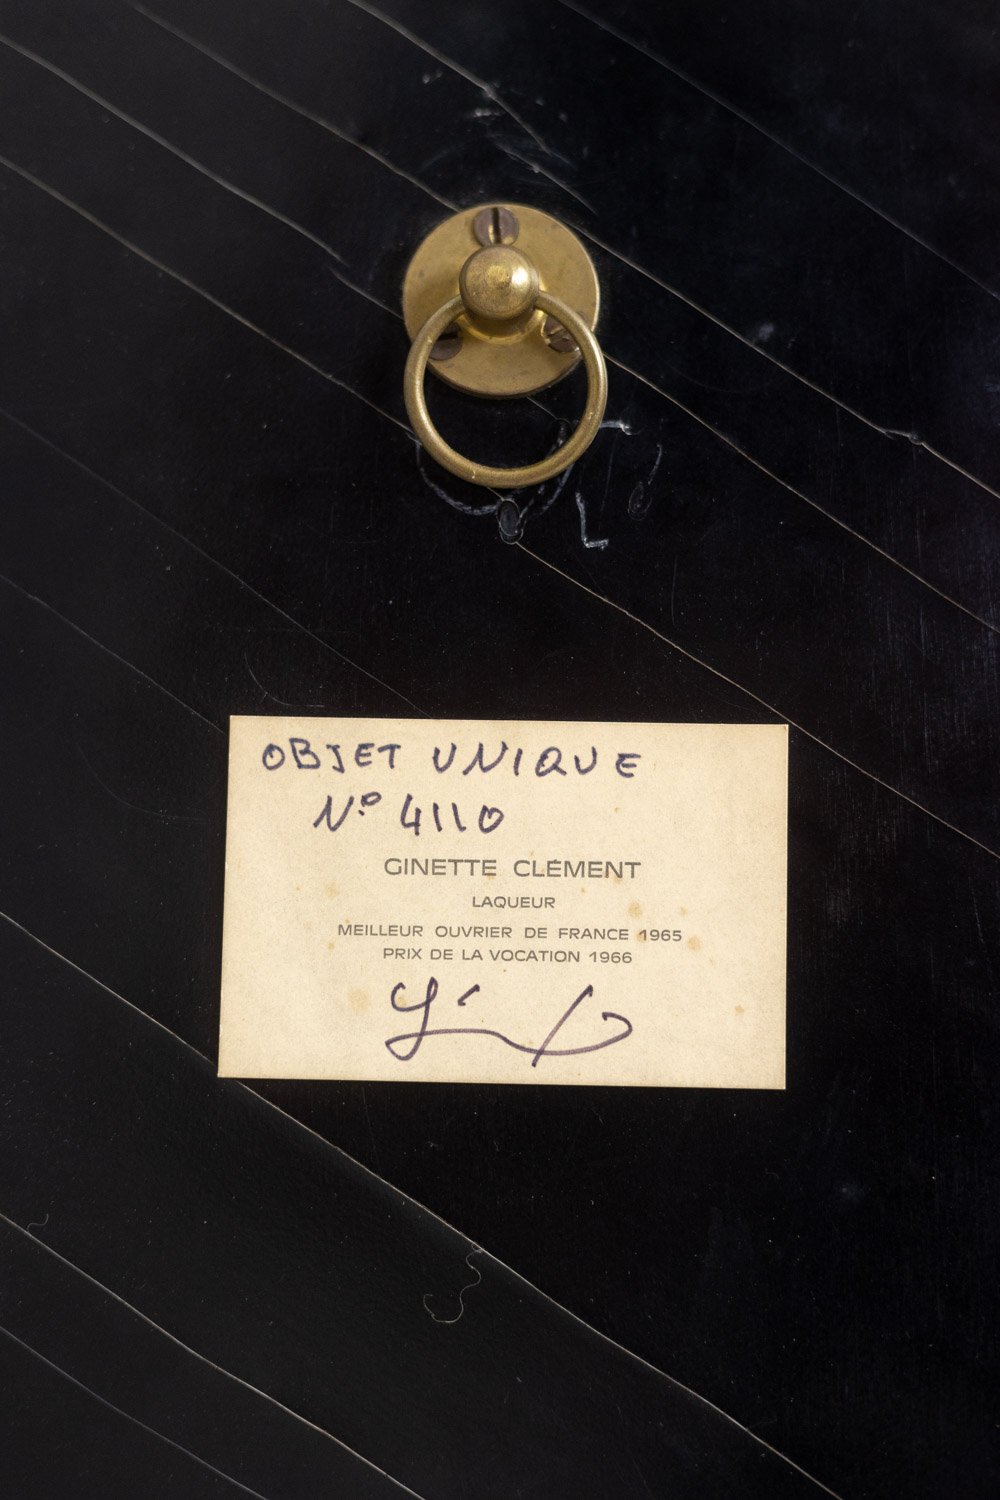 OBJET UNIQUE
N° 4110
GINETTE CLÉMENT
LAQUEUR
MEILLEUR OUVRIER DE FRANCE 1965
PRIX DE LA VOCATION 1966